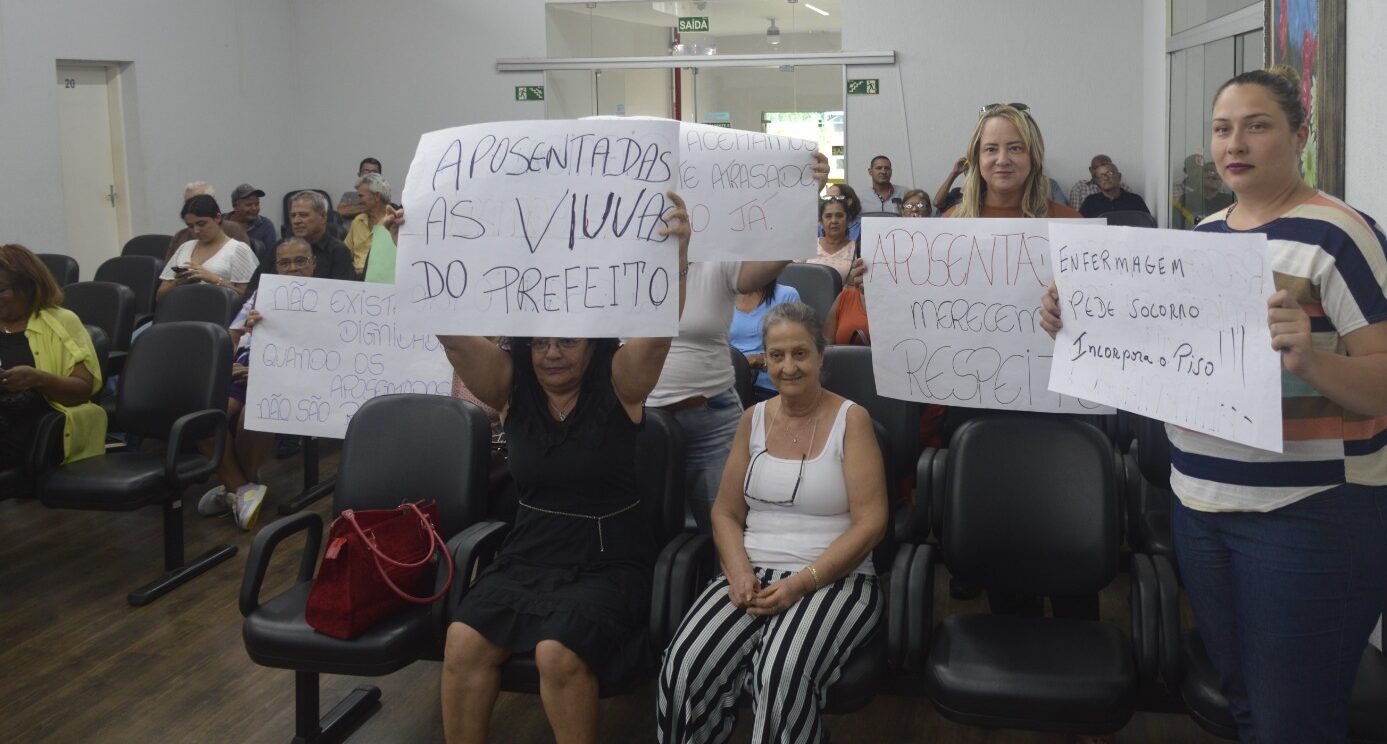 20
SAÍDA
APOSENTADAS
AS VIUVAS
DO PREFEITO
ACEITAMOS
ATRASADO
JÁ.
NÃO EXISTE
DIGNI
QUANDO OS
APOSENTADO
NÃO SÃO
APOSENTA
MERECEM
RESPEI
ENFERMAGEM
PEDE SOCORRO
Incorpora o Piso !!!!